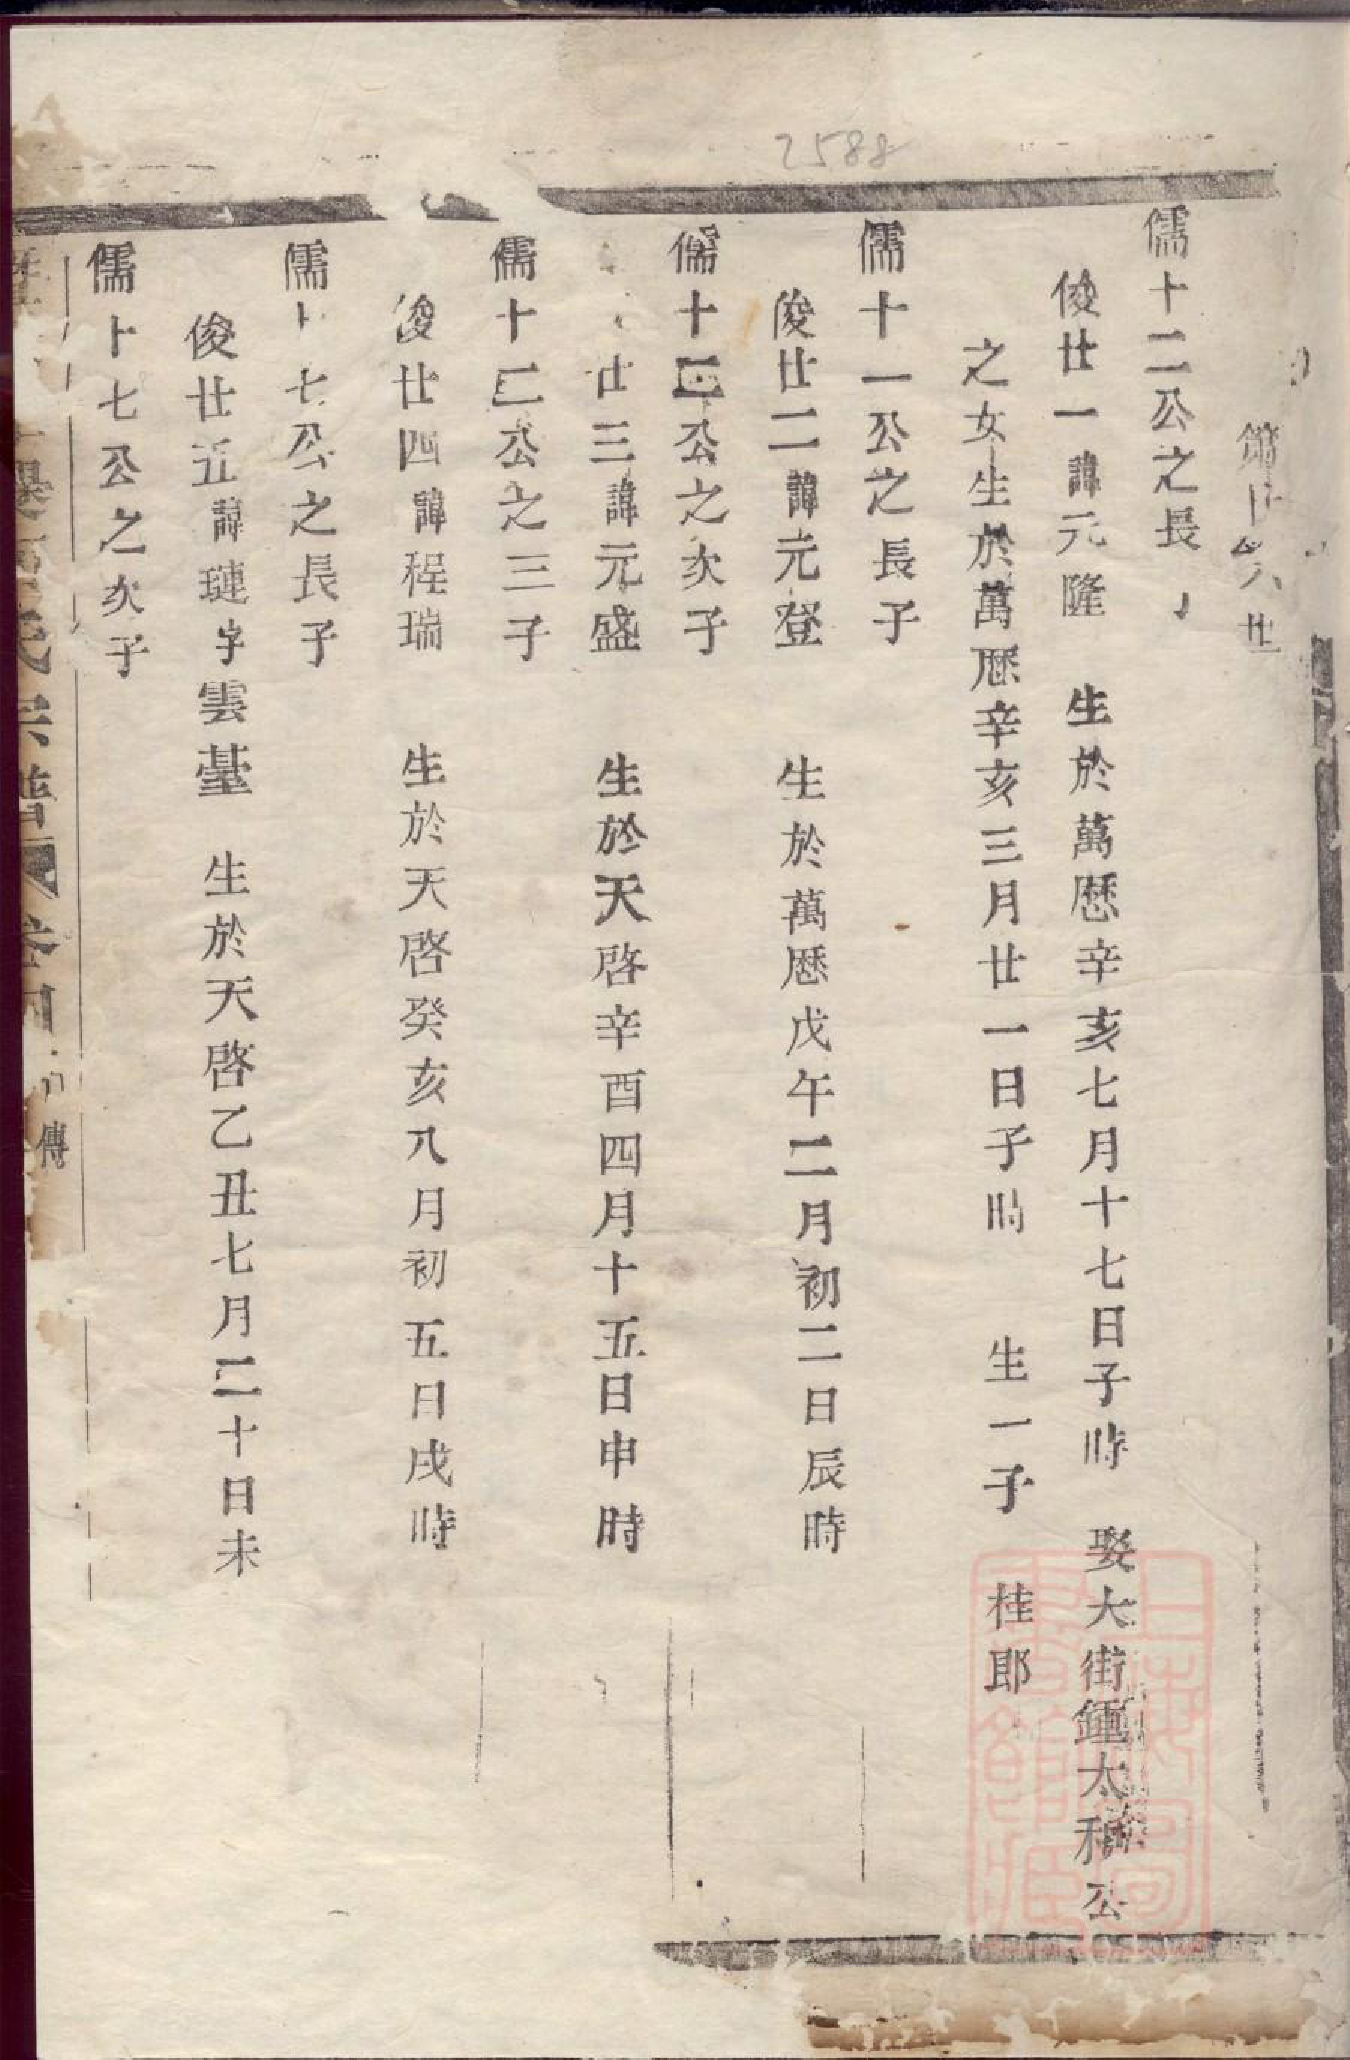 2588
儒十二公之長
俊廿一諱元隆 生於萬厯辛亥七月十七日子時 娶大街鍾太和公
之女生於萬厯辛亥三月廿一日子時 生一子 桂郎
儒十一公之長子
俊廿二諱元登 生於萬厯戊午二月初二日辰時
儒十二公之次子
廿三諱元盛 生於天啓辛酉四月十五日申時
儒十二公之三子
俊廿四諱程瑞 生於天啓癸亥八月初五日戌時
儒十七公之長子
俊廿五諱璉字雲䑓 生於天啓乙丑七月二十日未
儒十七公之次子
氏宗譜 卷四 傳
上海圖書館藏